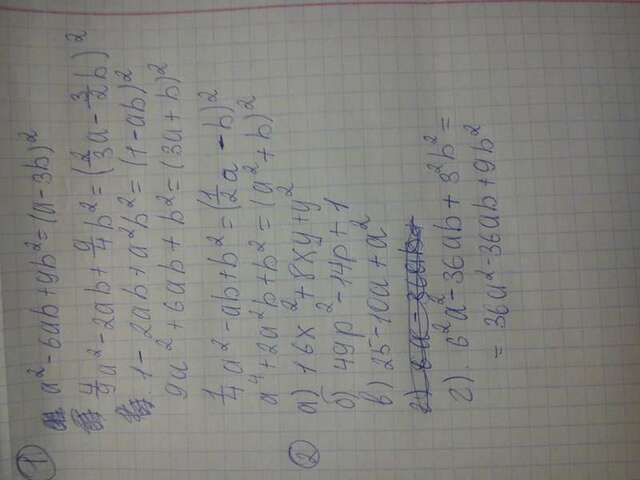 ① a² - 6ab + 9b² = (a - 3b)²
4/9 a² - 2ab + 9/4 b² = (2/3 a - 3/2 b)²
1 - 2ab + a²b² = (1 - ab)²
9a² + 6ab + b² = (3a + b)²
1/4 a² - ab + b² = (1/2 a - b)²
a⁴ + 2a²b + b² = (a² + b)²
② а) 16x² + 8xy + y²
б) 49p² - 14p + 1
в) 25 - 10a + a²
г). 6²a² - 36ab + 3²b² =
= 36a² - 36ab + 9b²